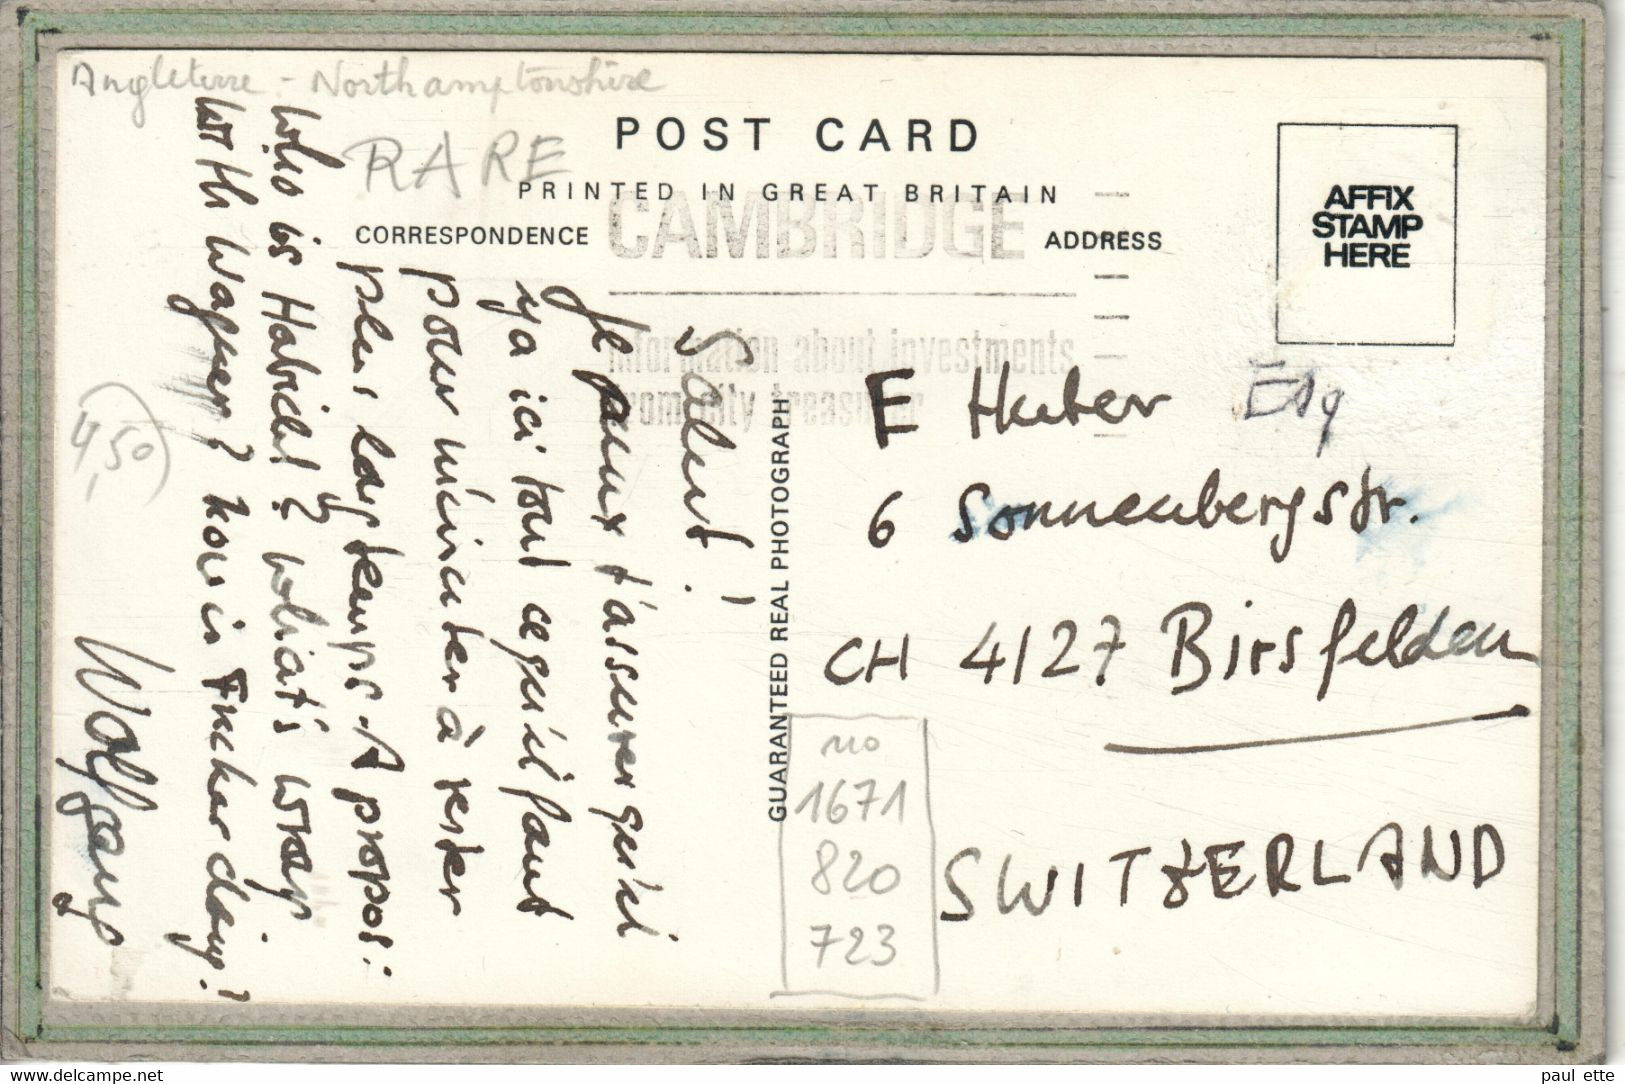 Angleterre - Northamptonshire
RARE
POST CARD
PRINTED IN GREAT BRITAIN
CORRESPONDENCE
ADDRESS
CAMBRIDGE
Information about investments
from city treasurer
AFFIX
STAMP
HERE
Salut!
Je peux t'assurer qu'ici
ya ici tout ce qu'il faut
pour m'inciter à rester
plus longtemps. A propos:
Who is Habicht? What's wrong
with Wagner? how is Fucker doing?
Wolfgang
4,50
GUARANTEED REAL PHOTOGRAPH
E Huber Esq
6 Sonnenbergstr.
CH 4127 Birsfelden
SWITZERLAND
no
1671
820
723
www.delcampe.net
paul ette